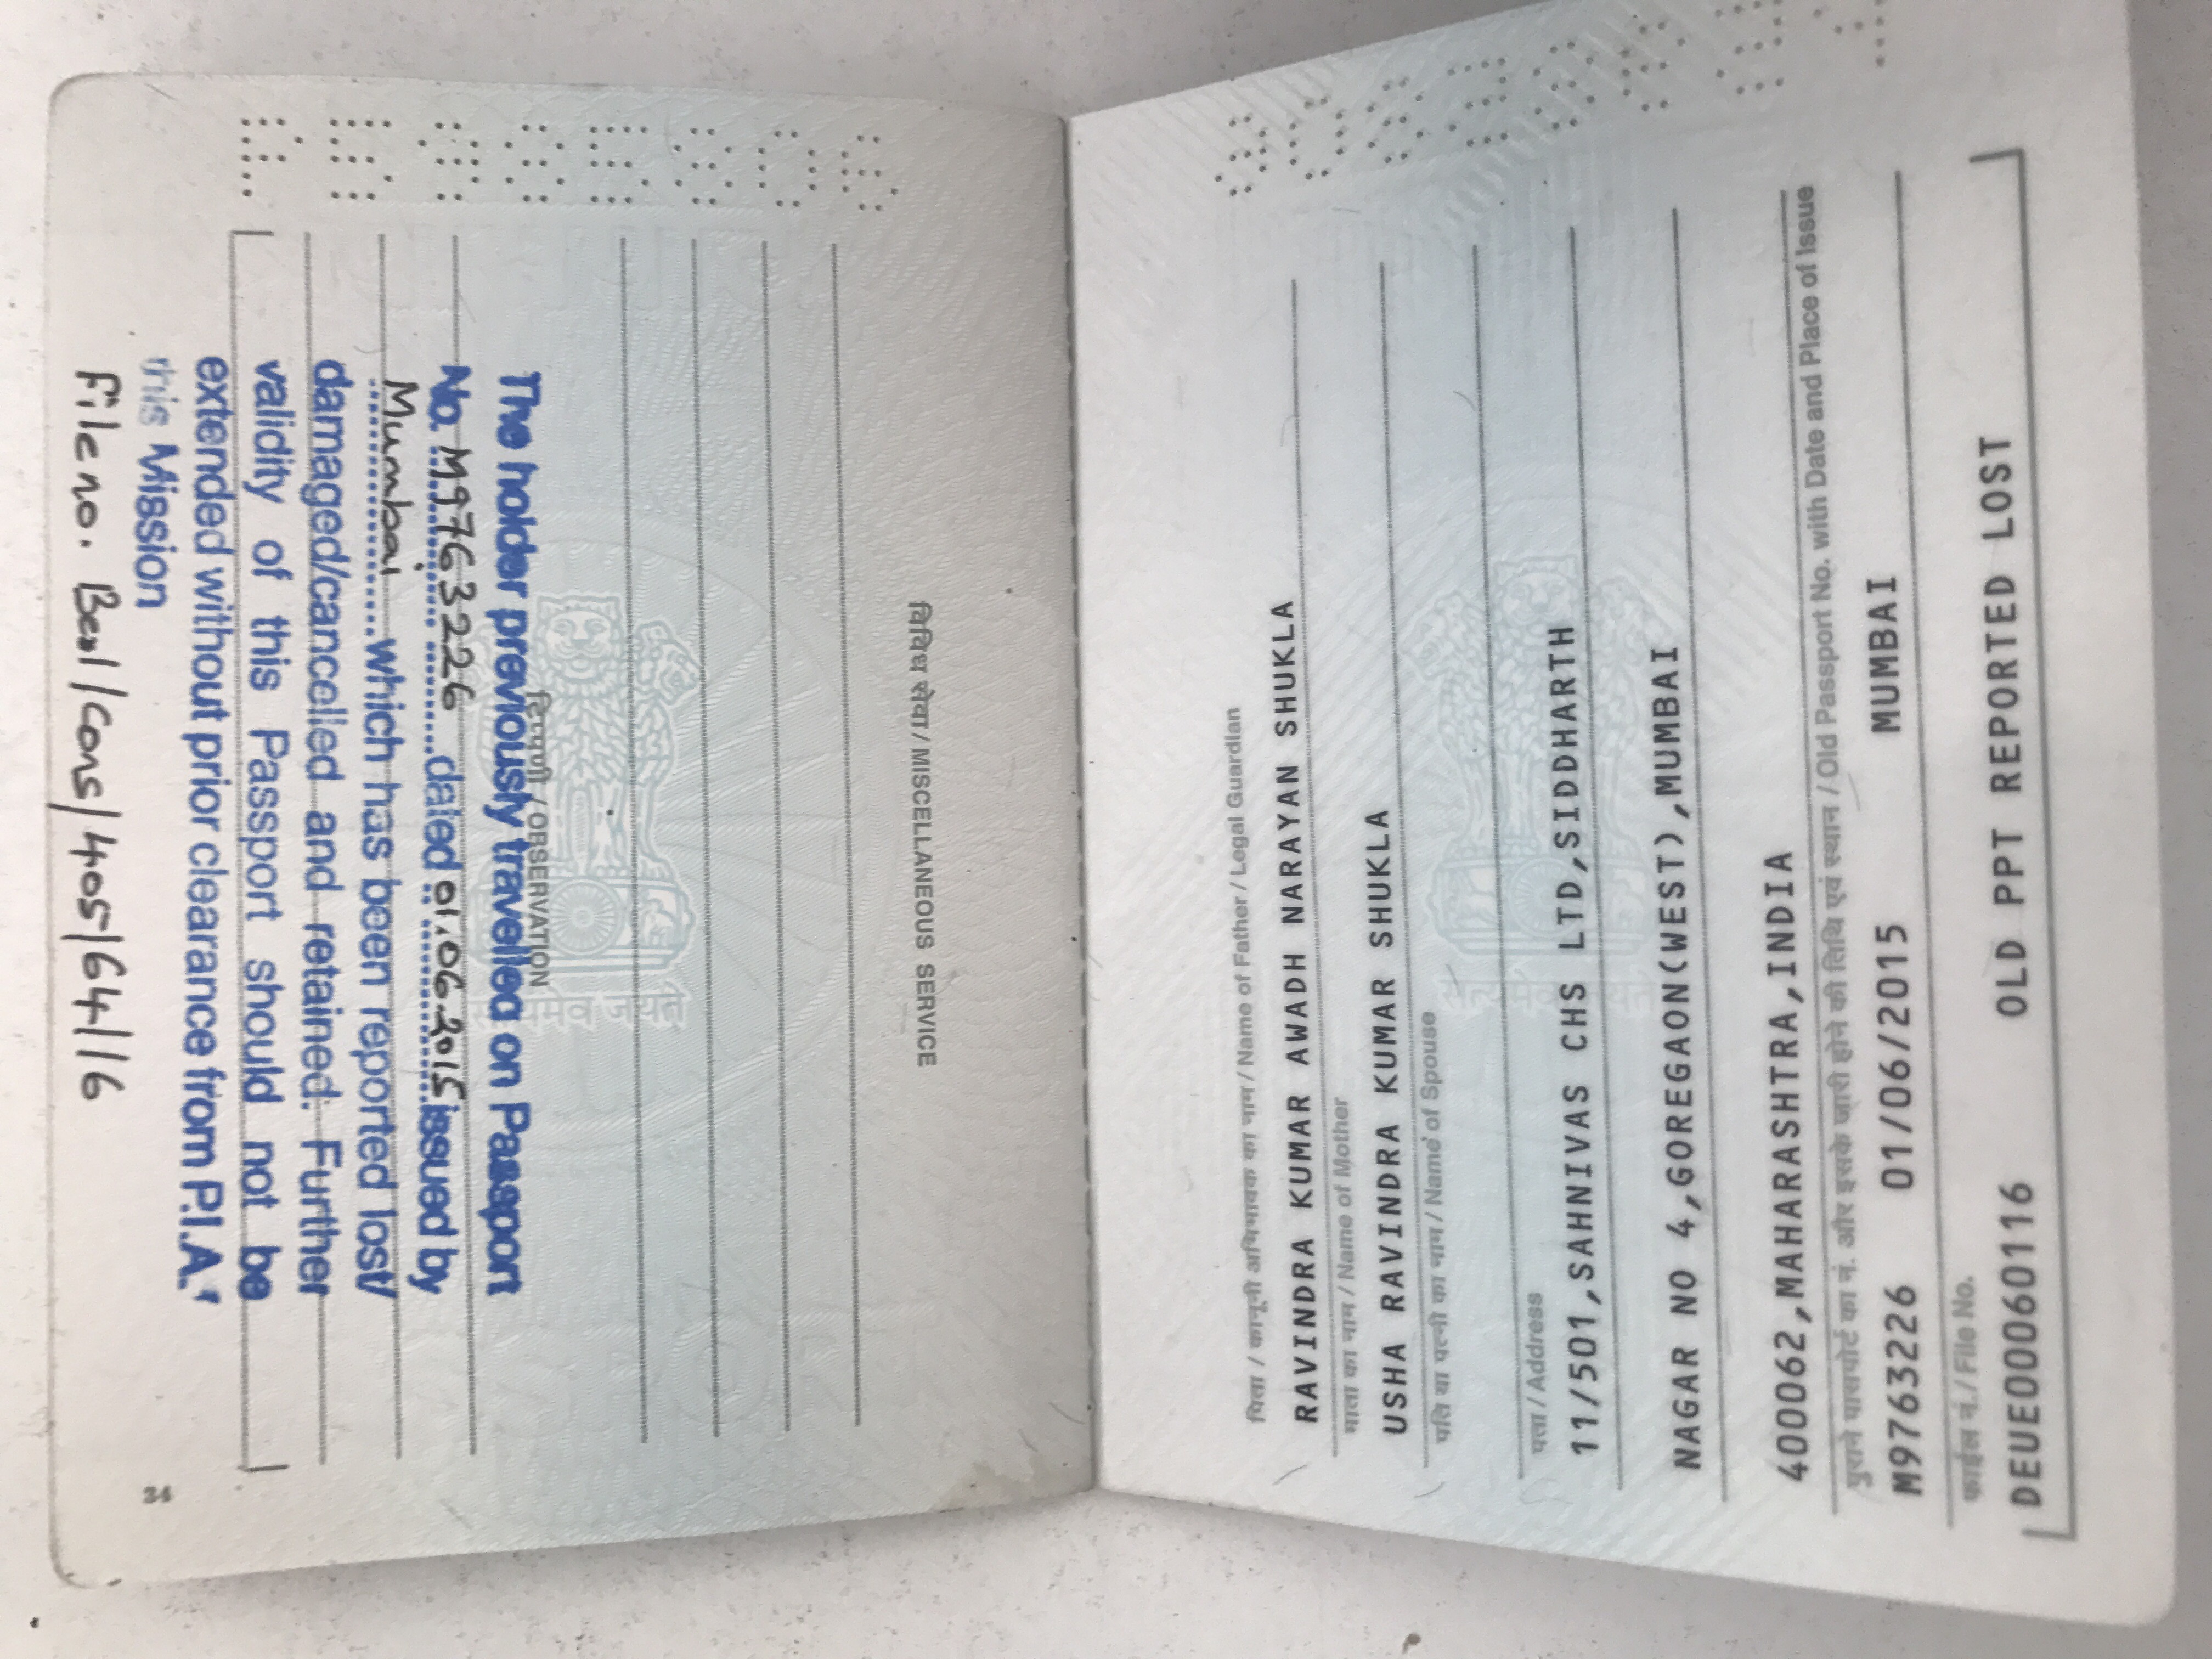 34
विविध सेवा / MISCELLANEOUS SERVICE
टिप्पणी / OBSERVATION
The holder previously travelled on Passport
No. M9763226 dated 01.06.2015 issued by
Mumbai which has been reported lost/
damaged/cancelled and retained. Further
validity of this Passport should not be
extended without prior clearance from P.I.A.
this Mission
File no. Berl/cons/405/64/16
सत्यमेव जयते
पिता / कानूनी अभिभावक का नाम / Name of Father / Legal Guardian
RAVINDRA KUMAR AWADH NARAYAN SHUKLA
माता का नाम / Name of Mother
USHA RAVINDRA KUMAR SHUKLA
पति या पत्नी का नाम / Name of Spouse
पता / Address
11/501,SAHNIVAS CHS LTD,SIDDHARTH
NAGAR NO 4,GOREGAON(WEST),MUMBAI
400062,MAHARASHTRA,INDIA
पुराने पासपोर्ट का नं. और इसके जारी होने की तिथि एवं स्थान / Old Passport No. with Date and Place of Issue
M9763226 01/06/2015 MUMBAI
फाईल नं. / File No.
DEUE00060116 OLD PPT REPORTED LOST
सत्यमेव जयते